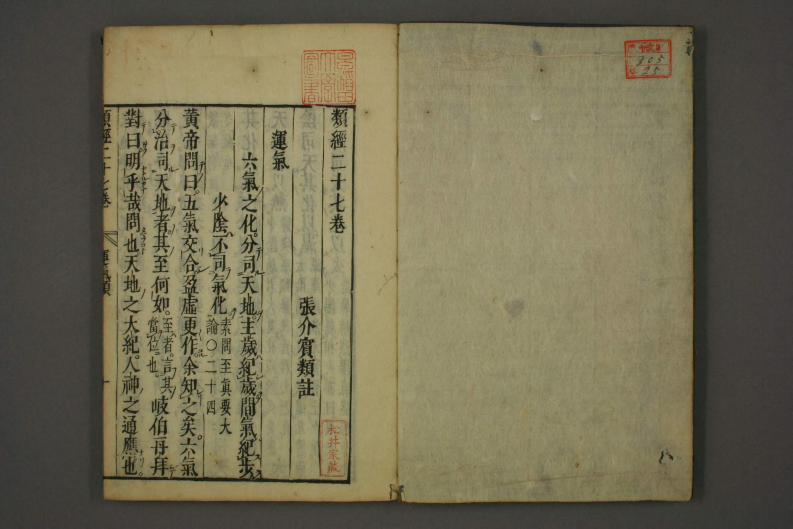 類經二十七卷
張介賓類註
運氣
六氣之化分司天地主歲紀歲間氣紀步
少陰不司氣化素問至眞要大論○二十四
黃帝問曰五氣交合盈虛更作余知之矣六氣
分治司天地者其至何如至者言其當位也岐伯再拜
對曰明乎哉問也天地之大紀人神之通應也
類經二十七卷
運氣類
松井家藏
805
25